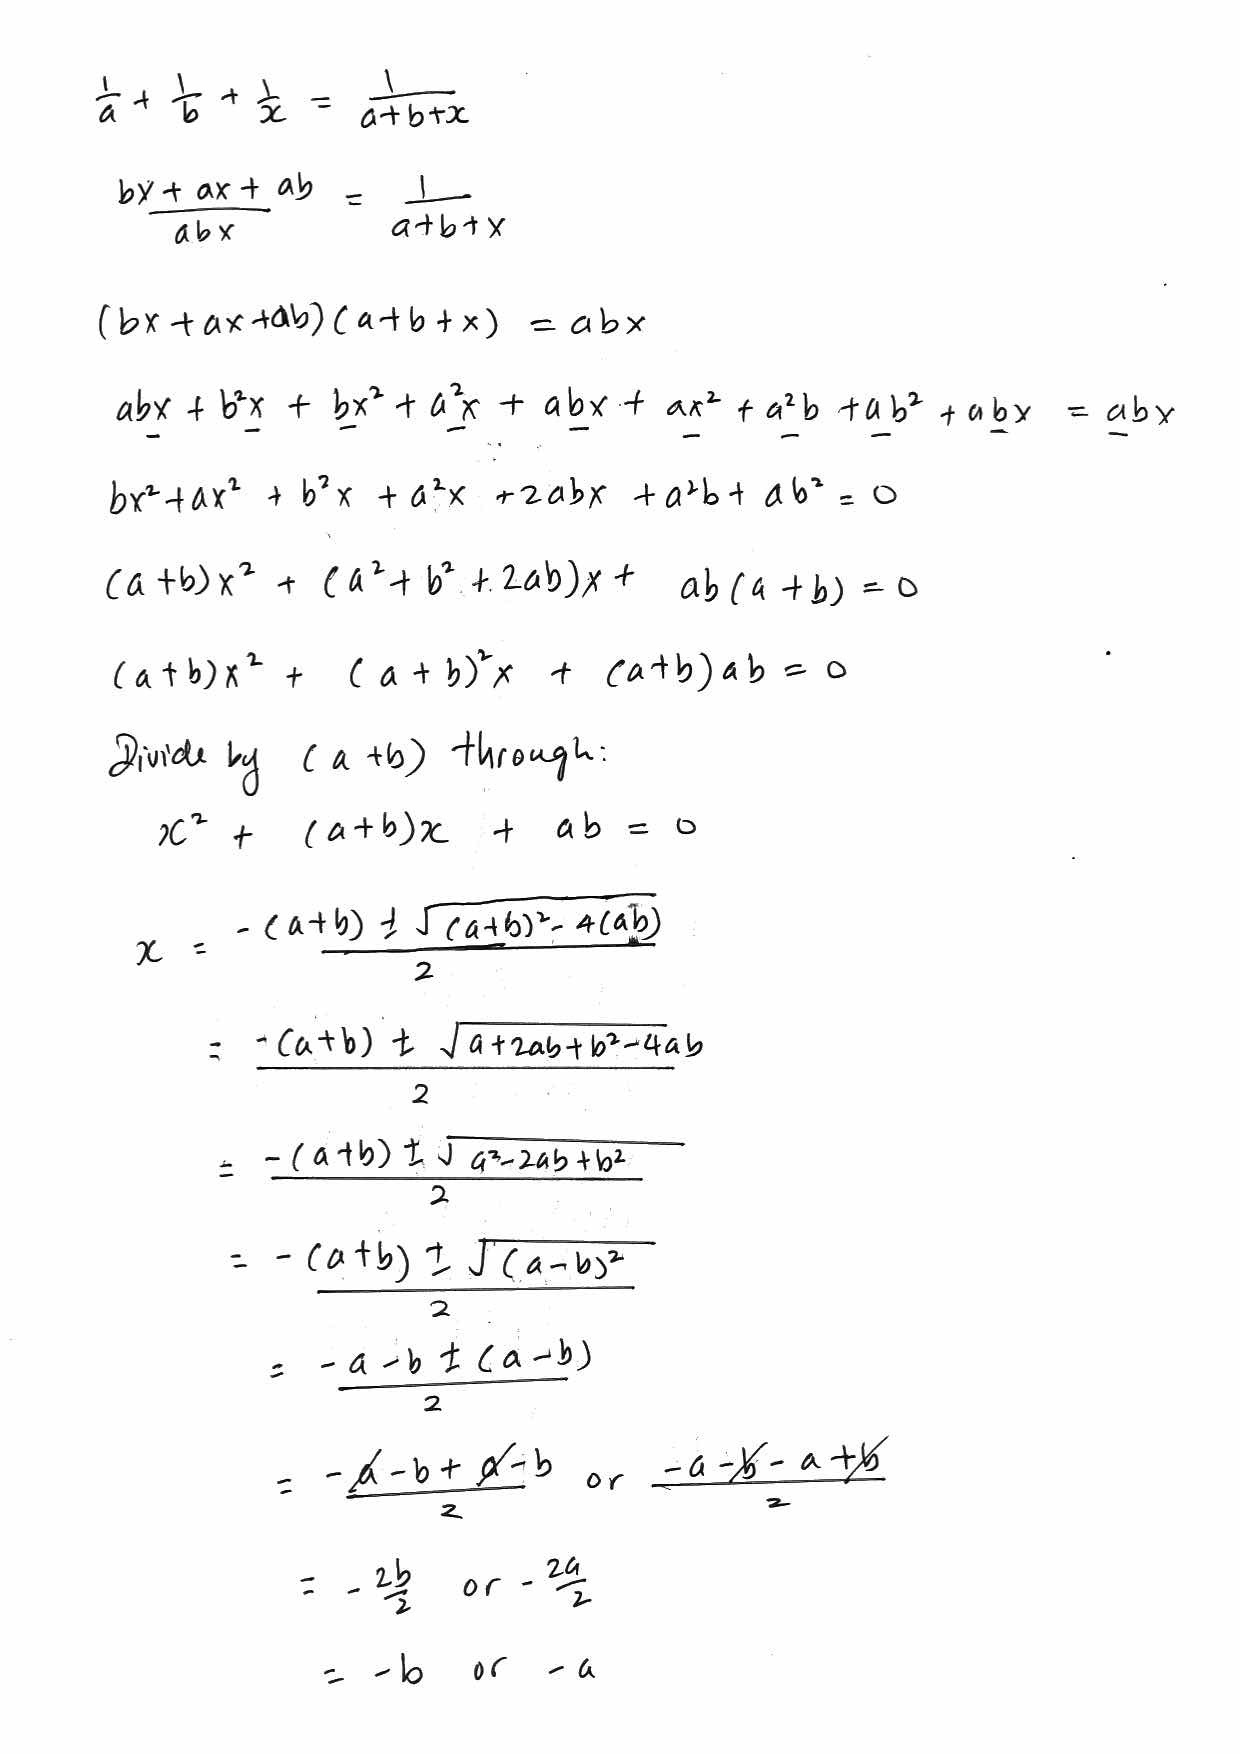 1/a + 1/b + 1/x = 1/(a+b+x)
(bx + ax + ab)/(abx) = 1/(a+b+x)
(bx + ax + ab)(a+b+x) = abx
abx + b²x + bx² + a²x + abx + ax² + a²b + ab² + abx = abx
bx² + ax² + b²x + a²x + 2abx + a²b + ab² = 0
(a+b)x² + (a² + b² + 2ab)x + ab(a+b) = 0
(a+b)x² + (a+b)²x + (a+b)ab = 0
Divide by (a+b) through:
x² + (a+b)x + ab = 0
x = (-(a+b) ± √((a+b)² - 4(ab)))/2
= (-(a+b) ± √(a+2ab+b²-4ab))/2
= (-(a+b) ± √(a²-2ab+b²))/2
= (-(a+b) ± √((a-b)²))/2
= (-a-b ± (a-b))/2
= (-a-b+a-b)/2 or (-a-b-a+b)/2
= -2b/2 or -2a/2
= -b or -a